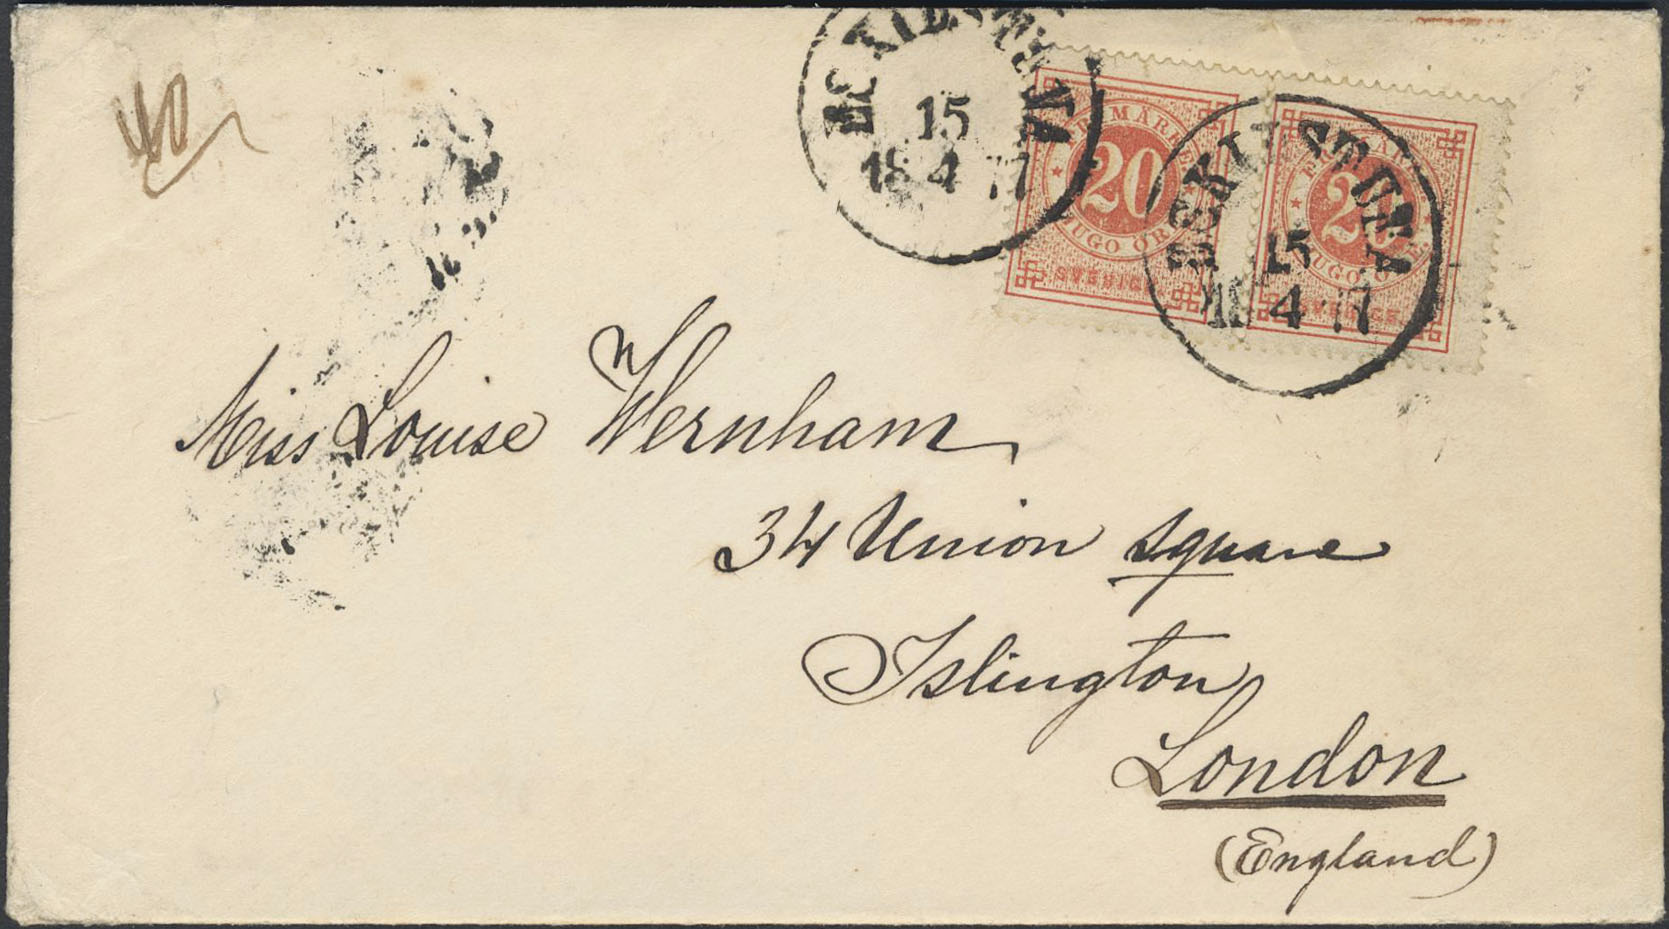 ESKILSTUNA
15
18 4 77
FRIMÄRKE
20
TJUGO ÖRE
SVERIGE
FRIMÄRKE
20
TJUGO ÖRE
SVERIGE
ESKILSTUNA
15
18 4 77
Miss Louise Wernham
34 Union square
Islington
London
(England)